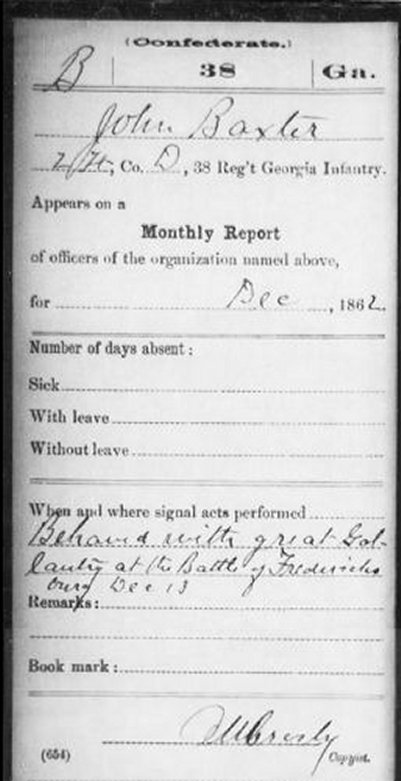 (Confederate.)
B | 38 | Ga.
John Baxter
2 Lt, Co. D, 38 Reg't Georgia Infantry.
Appears on a
Monthly Report
of officers of the organization named above,
for Dec, 1862.
Number of days absent:
Sick
With leave
Without leave
When and where signal acts performed
Behaved with great Gal-
lantry at the Battle of Fredericks
burg Dec 13
Remarks:
Book mark:
(654)
Copyist.